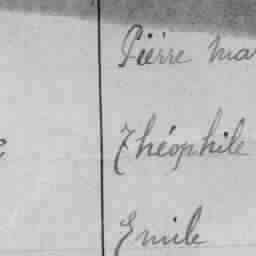 Pierre Mar
Théophile
Emile